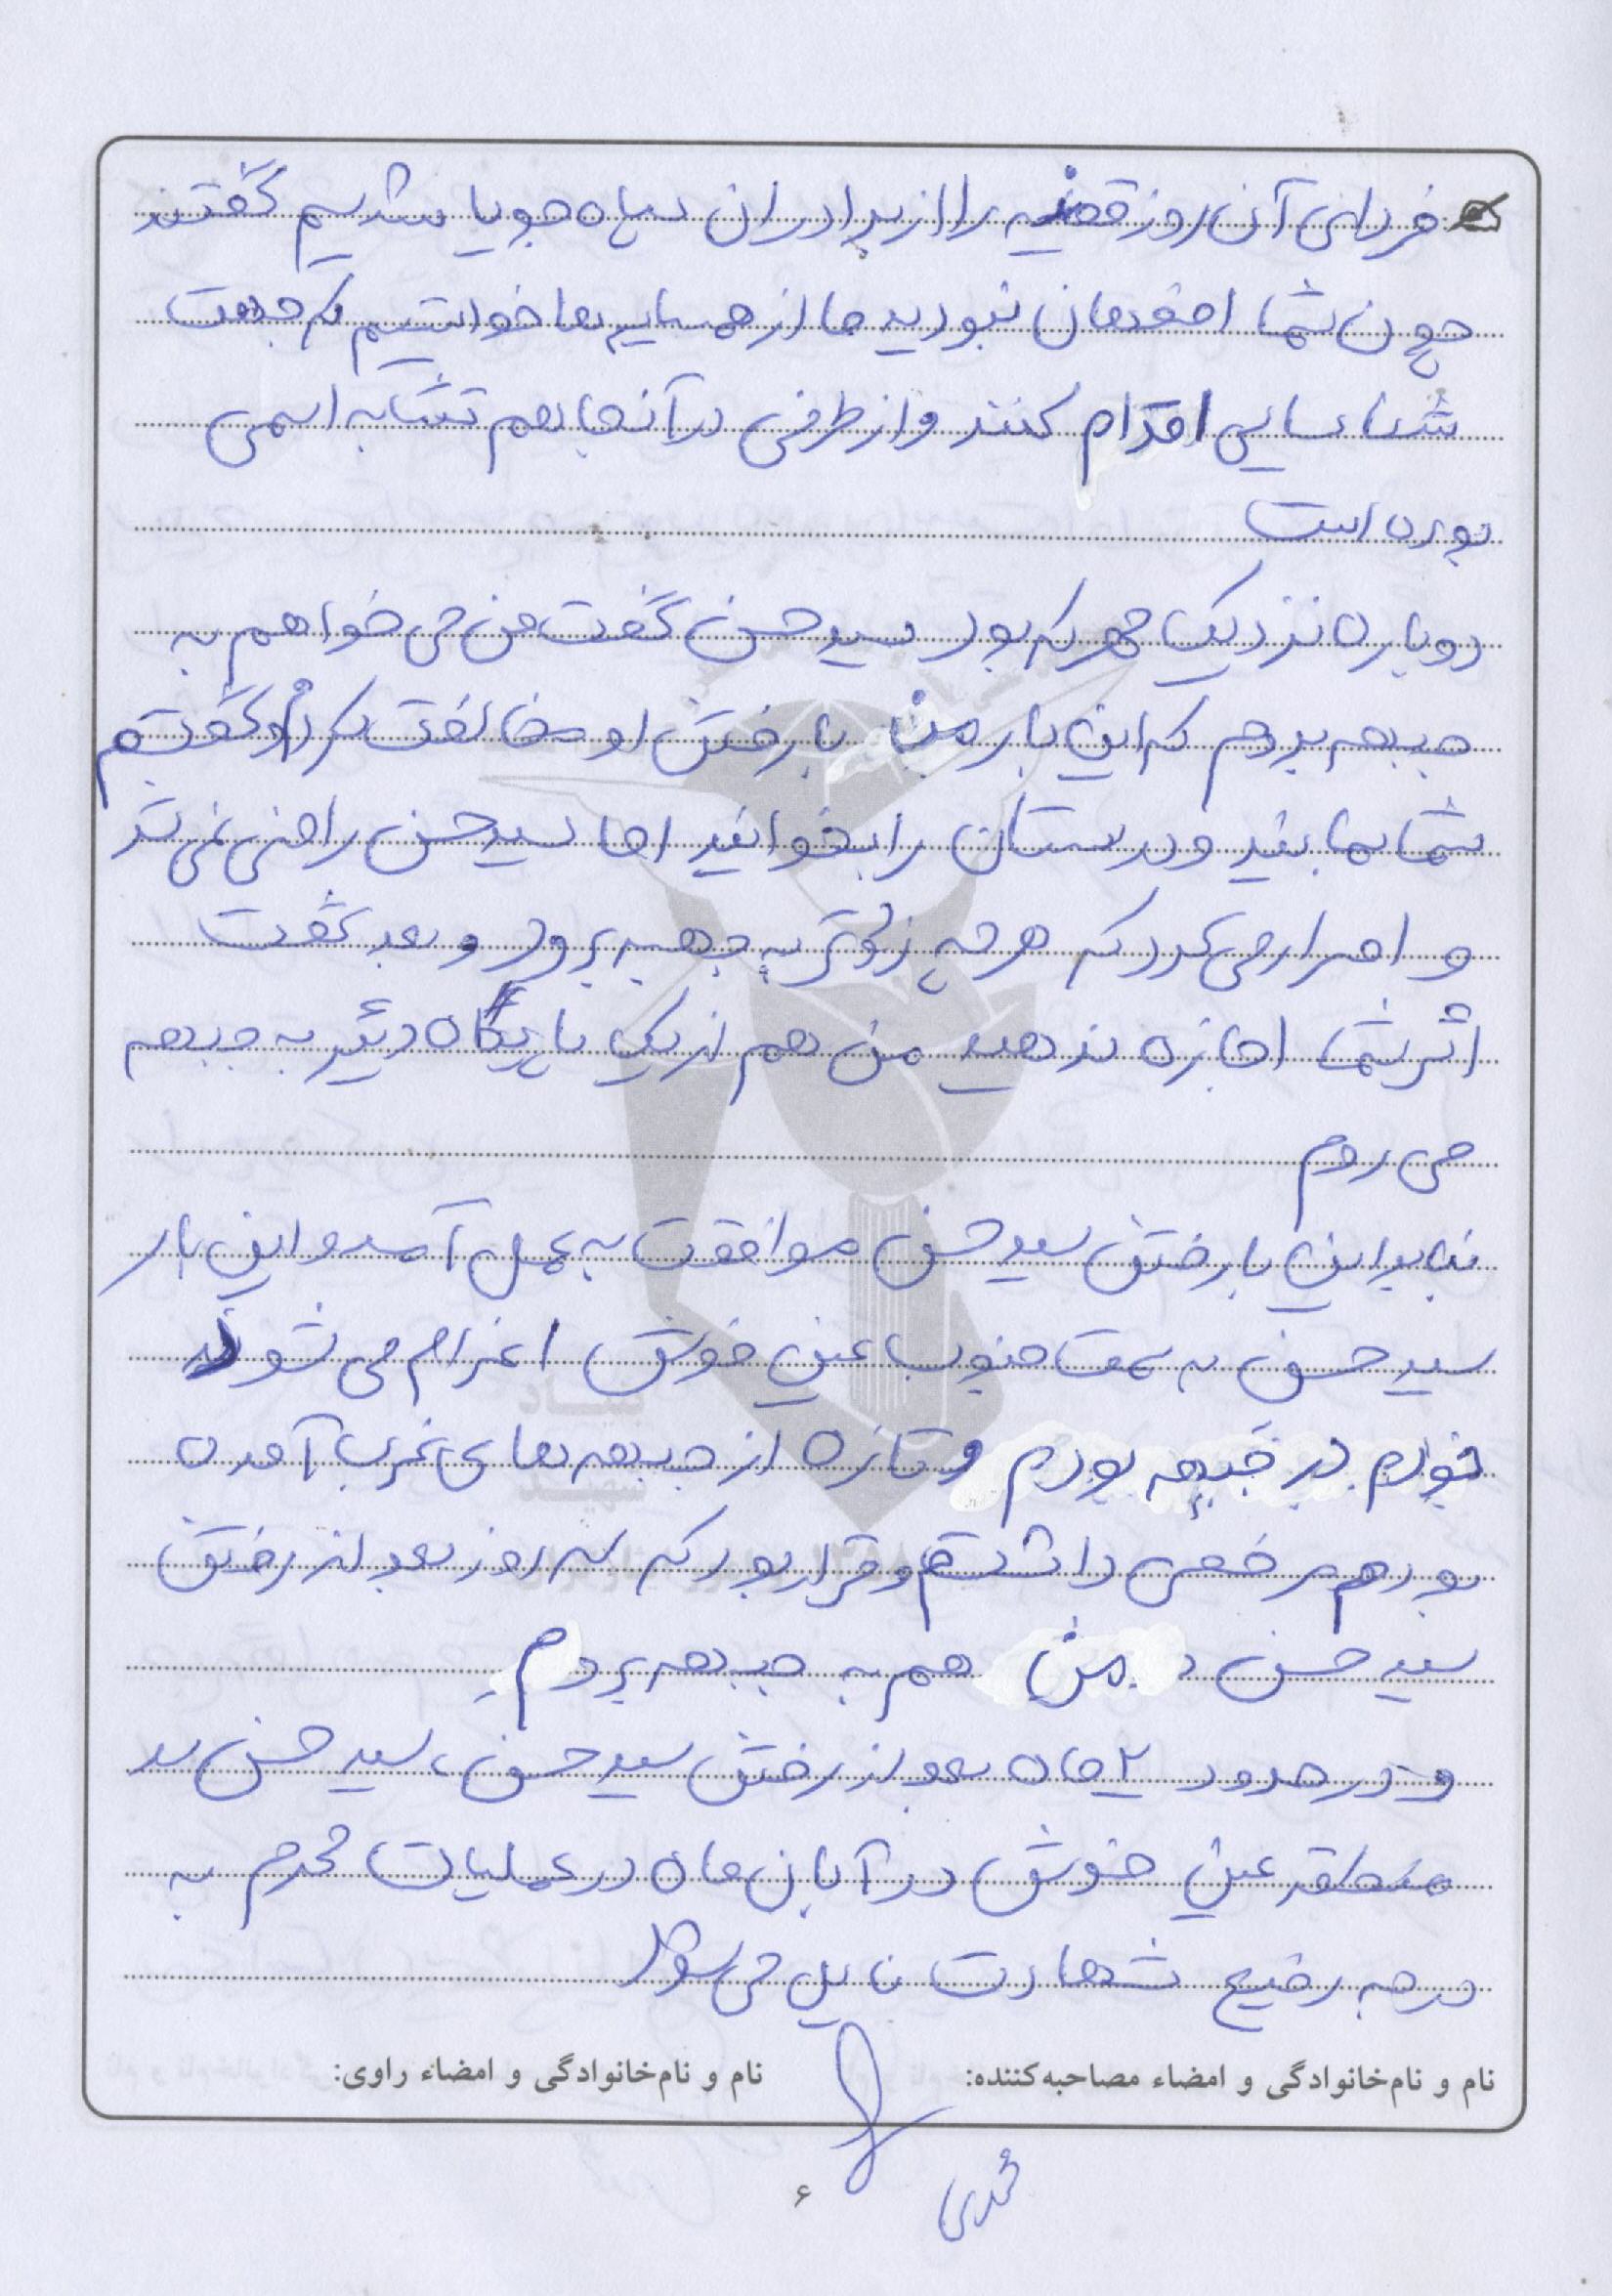 فردای آن روز قضیه را از برادران سپاه جویا شدیم گفتند
چون شما اصفهان نبودید ما از همسایه ها خواستیم که جهت
شناسایی اقدام کنند و از طرفی در آنجا هم تشابه اسمی
بوده است
دوباره نزدیک مهر که بود سید حسن گفت من می خواهم به
جبهه بروم که این بار من با رفتن او مخالفت کردم و گفتم
شما بمانید و درستان را بخوانید اما سید حسن راضی نمی شد
و اصرار می کرد که هر چه زودتر به جبهه برود و بعد گفت
اگر شما اجازه ندهید من هم از یک پایگاه دیگر به جبهه
می روم
بنابراین با رفتن سید حسن موافقت به عمل آمد و این بار
سید حسن به سمت جنوب عین خوش اعزام می شود
خودم در جبهه بودم و تازه از جبهه های غرب آمده
بودم مرخصی داشتم و قرار بود که سه روز بعد از رفتن
سید حسن من هم به جبهه بروم
و در حدود ۲ ماه بعد از رفتن سید حسن، سید حسن در
منطقه عین خوش در آبان ماه در عملیات محرم به
درجه رفیع شهادت نایل می شود
نام و نام‌خانوادگی و امضاء مصاحبه‌کننده: نام و نام‌خانوادگی و امضاء راوی:
۶